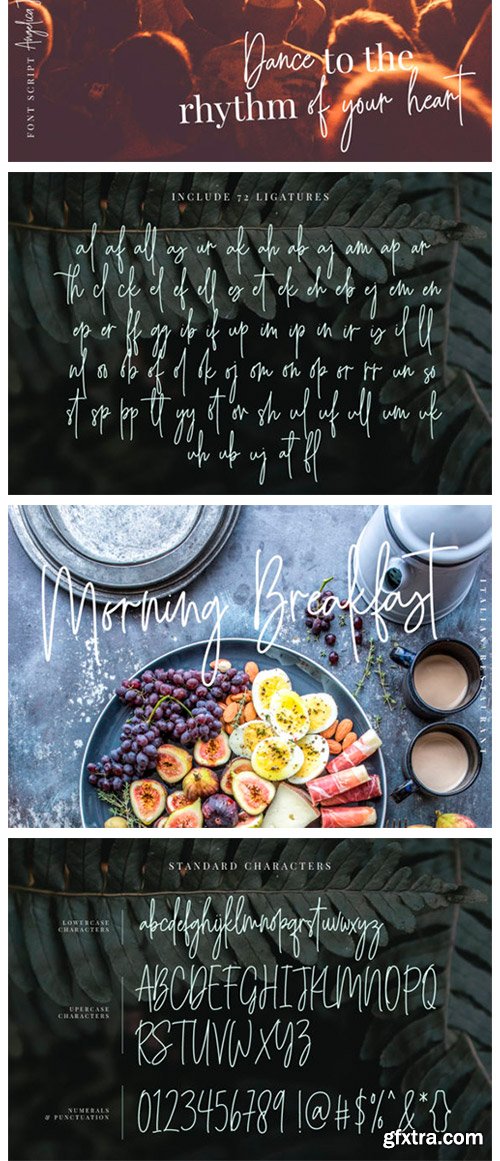 FONT SCRIPT Angelica
Dance to the
rhythm of your heart
INCLUDE 72 LIGATURES
al af all as ur ak ah ab aj am ap ar
th cl ck el ef ell es et ek eh eb ej em en
ep er ff gg ib if up im ip in ir is il ll
nl oo ob of ol ok oj om on op or rr un so
st sp pp tt yy ot ov sh ul uf ull um uk
uh ub uj at fl
Morning Breakfast
ITALIAN RESTAURANT
STANDARD CHARACTERS
LOWERCASE
CHARACTERS
abcdefghijklmnopqrstuvwxyz
UPERCASE
CHARACTERS
ABCDEFGHIJKLMNOPQ
RSTUVWXYZ
NUMERALS
& PUNCTUATION
0123456789 !@#$%^&*{}
gfxtra.com